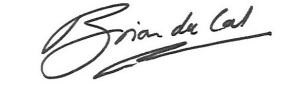 Brian de Cal